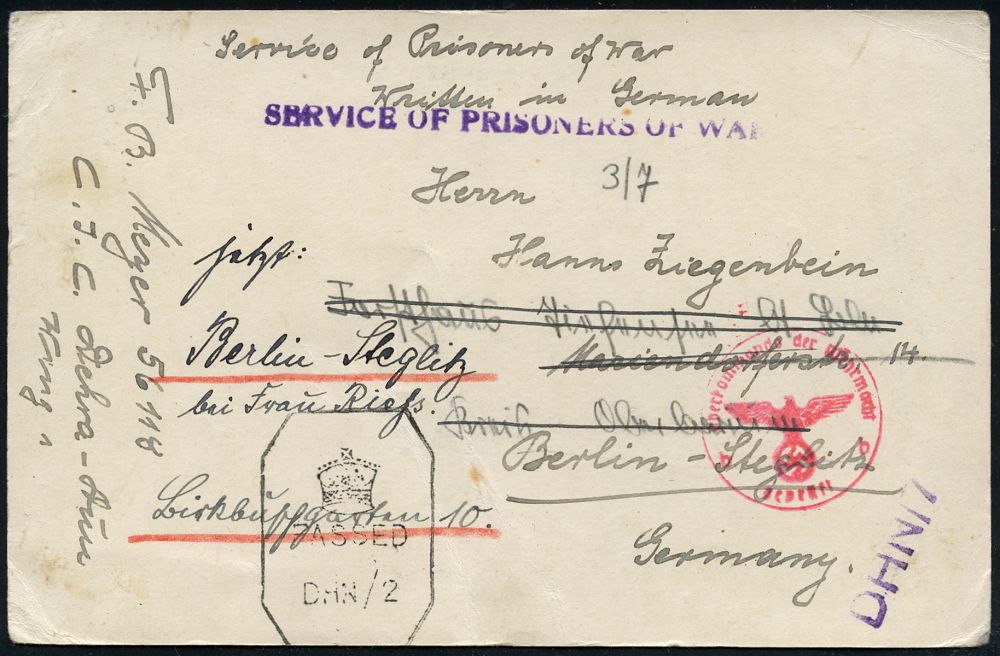 Service of Prisoners of War
Written in German
SERVICE OF PRISONERS OF WAR
Herrn 3/7
Hanns Ziegenbein
jetzt:
Forsthaus
Mariendorferstr. 14.
Berlin-Steglitz
bei Frau Riess.
Kreis Oberbarnim
Berlin-Steglitz
Birkbuschgarten 10.
Germany.
PASSED
DHN/2
Oberkommando der Wehrmacht
Geprüft
b b
DHN/7
B. Mezger 56118
C.I.C. Dehra-Dun
Wing